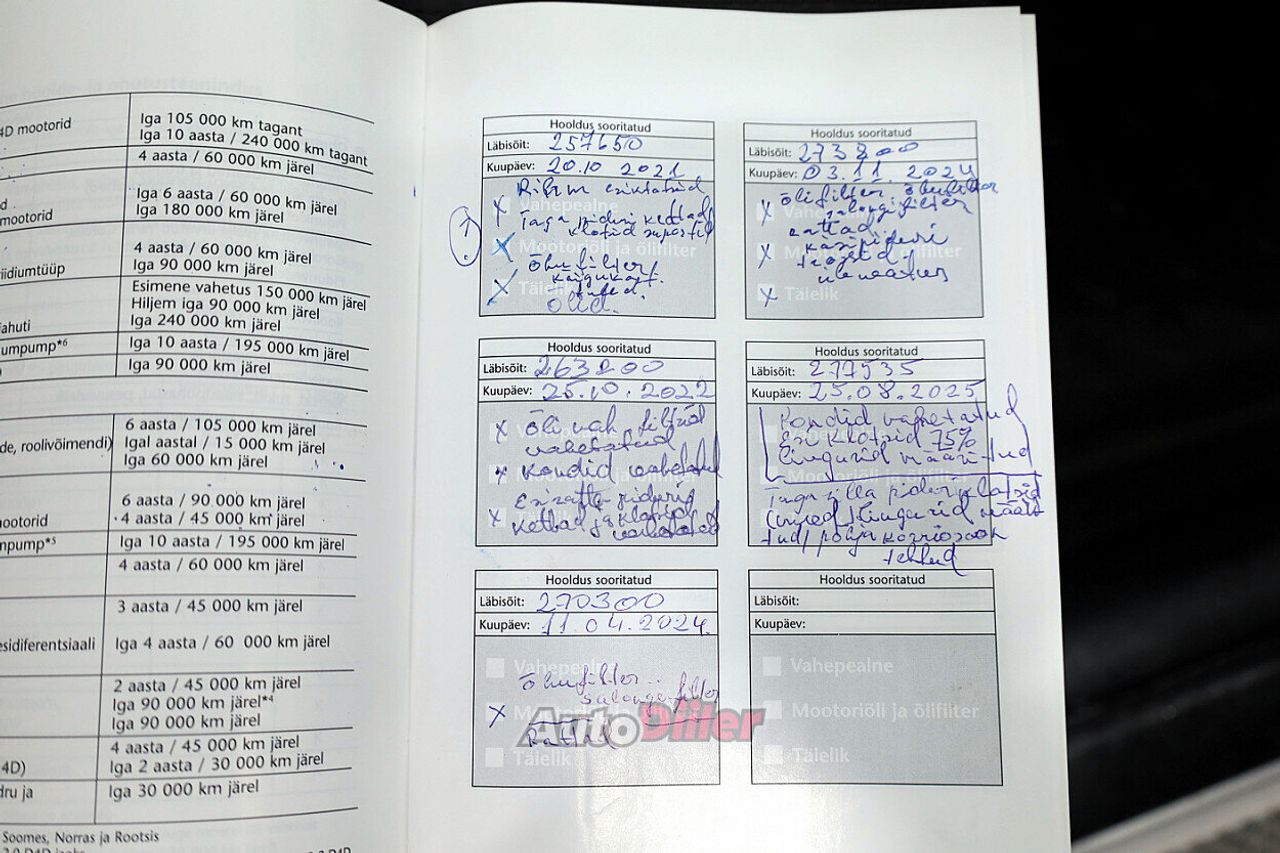 4D mootorid
Iga 105 000 km tagant
Iga 10 aasta / 240 000 km tagant
4 aasta / 60 000 km järel
d
mootorid
Iga 6 aasta / 60 000 km järel
Iga 180 000 km järel
riidiumtüüp
4 aasta / 60 000 km järel
Iga 90 000 km järel
jahuti
Esimene vahetus 150 000 km järel
Hiljem iga 90 000 km järel
Iga 240 000 km järel
umpump*6
Iga 10 aasta / 195 000 km järel
Iga 90 000 km järel
de, roolivõimendi)
6 aasta / 105 000 km järel
Igal aastal / 15 000 km järel
Iga 60 000 km järel
mootorid
6 aasta / 90 000 km järel
4 aasta / 45 000 km järel
mpump*5
Iga 10 aasta / 195 000 km järel
4 aasta / 60 000 km järel
3 aasta / 45 000 km järel
esidiferentsiaali
Iga 4 aasta / 60 000 km järel
2 aasta / 45 000 km järel
Iga 90 000 km järel*4
Iga 90 000 km järel
4D)
4 aasta / 45 000 km järel
Iga 2 aasta / 30 000 km järel
dru ja
Iga 30 000 km järel
Soomes, Norras ja Rootsis
Hooldus sooritatud
Läbisõit: 257650
Kuupäev: 20.10 2021
Vahepealne
Taga piduri kettad
klotsid
Mootoriõli ja õlifilter
õhufilter
Täielik
õlid.
Hooldus sooritatud
Läbisõit: 273800
Kuupäev: 03.11.2024
õlifilter õhufilter
Vahepealne
salongifilter
rattad
käsipiduri
Mootoriõli ja õlifilter
Täielik
Hooldus sooritatud
Läbisõit: 263200
Kuupäev: 25.10.2022
õli vah filtrid
Vahepealne
vahetatud
kondid vahetatud
Mootoriõli ja õlifilter
Esiratta pidurid
kettad ja klotsid
Täielik
vahetatud
Hooldus sooritatud
Läbisõit: 277535
Kuupäev: 25.08.2025
Kondid vahetatud
Vahepealne
Esi klotsid 75%
Suugurid määritud
Mootoriõli ja õlifilter
Taga silla piduriklotsid
(uued)
Täielik
tud/põhja korriosoon
tehtud
Hooldus sooritatud
Läbisõit: 270300
Kuupäev: 11.04.2024.
Vahepealne
õhufilter
salongifilter
Mootoriõli ja õlifilter
AutoDiler
Rattad
Täielik
Hooldus sooritatud
Läbisõit:
Kuupäev:
Vahepealne
Mootoriõli ja õlifilter
Täielik